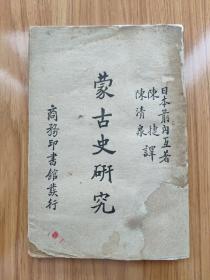 日本箭內亙著
陳捷
陳清泉 譯
蒙古史研究
商務印書館發行